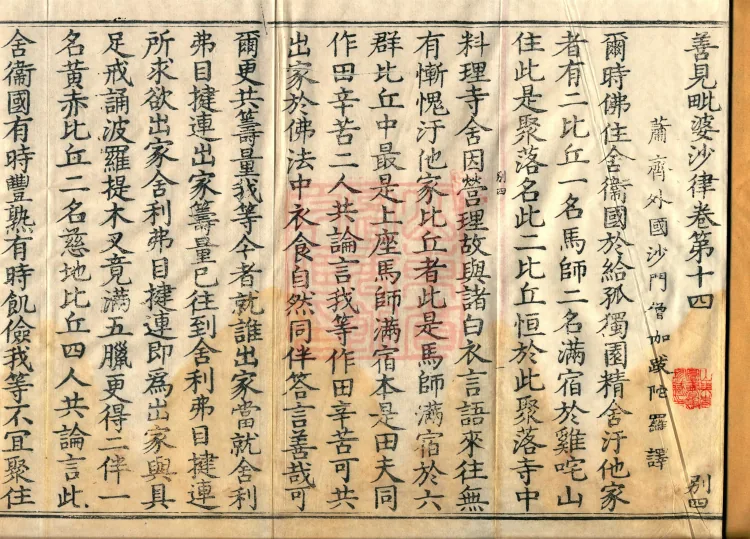 善見毗婆沙律卷第十四
蕭齊外國沙門僧伽䟦陁羅譯
別四
爾時佛住舍衞國於給孤獨園精舍汙他家
者有二比丘一名馬師二名滿宿於雞咤山
住此是聚落名此二比丘恒於此聚落寺中
別四
料理寺舍因營理故與諸白衣言語來往無
有慚愧汙他家比丘者此是馬師滿宿於六
群比丘中最是上座馬師滿宿本是田夫同
作田辛苦二人共論言我等作田辛苦可共
出家於佛法中衣食自然同伴荅言善哉可
爾更共籌量我等今者就誰出家當就舍利
弗目揵連出家籌量已往到舍利弗目揵連
所求欲出家舍利弗目揵連即爲出家與具
足戒誦波羅提木叉竟滿五臘更得二伴一
名黃赤比丘二名慈地比丘四人共論言此
舍衞國有時豐熟有時飢儉我等不冝聚住